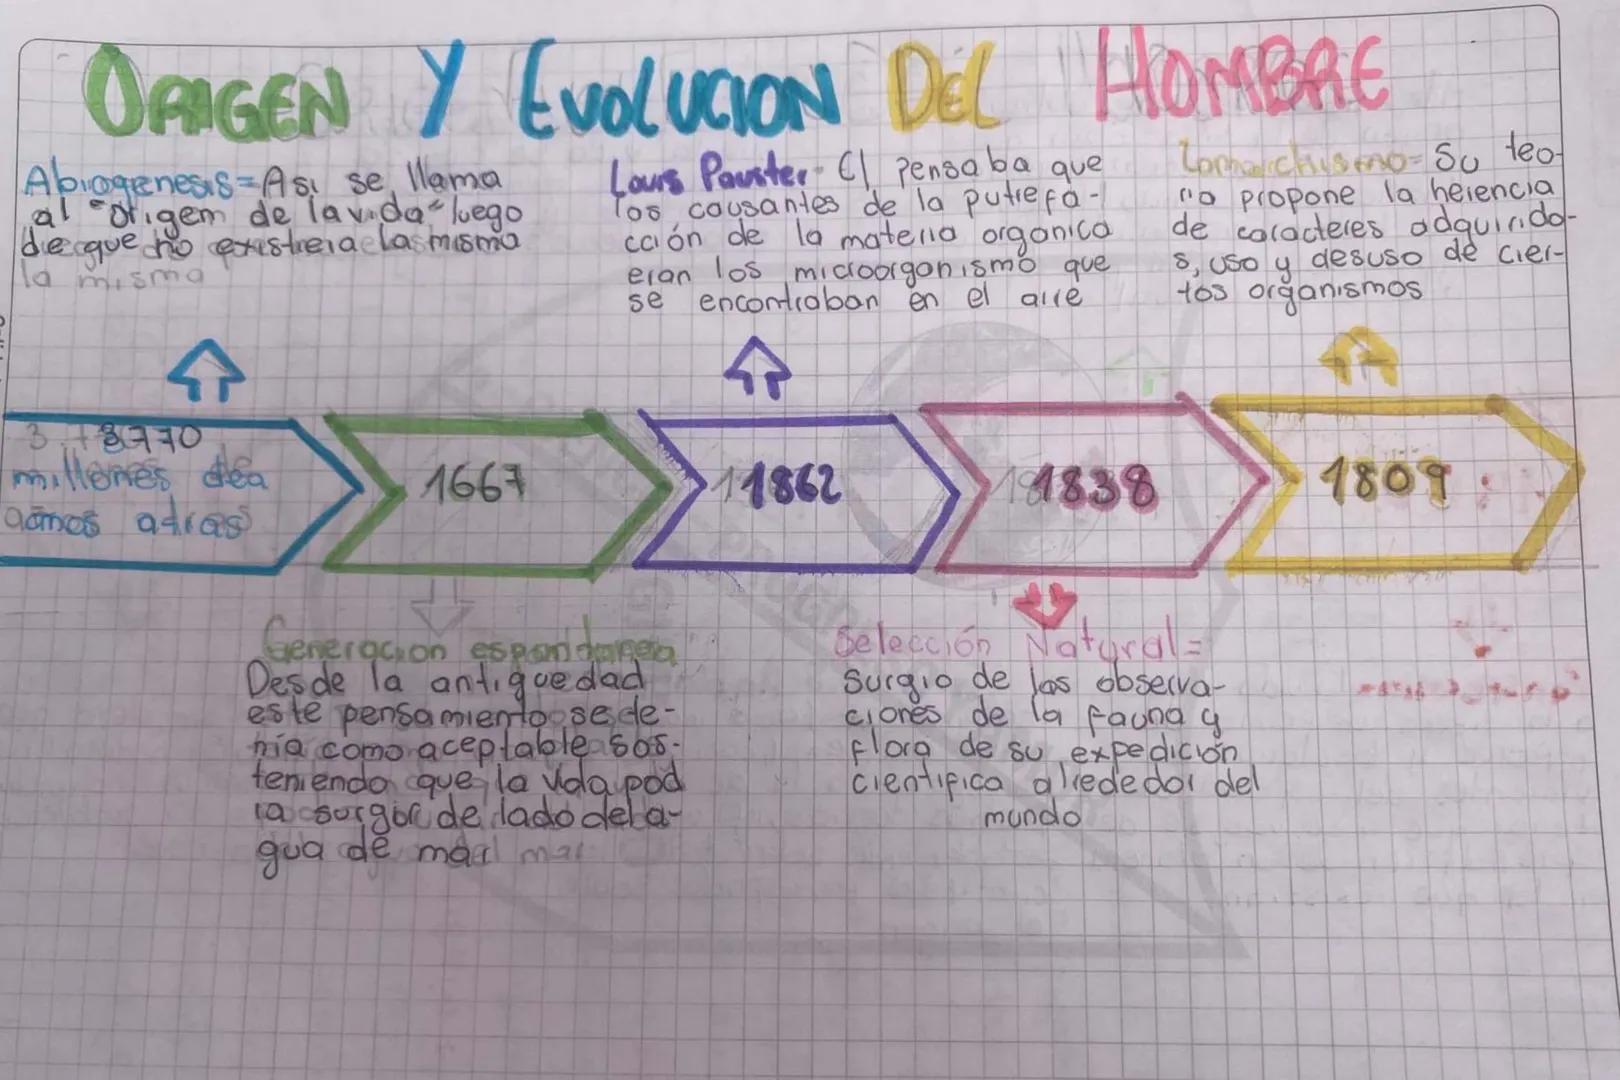 ORIGEN Y EVOLUCION DEL HOMBRE
Abiogenesis=Asi se llama
al "origem de la vida" luego
de que no existiera la misma
la misma
Lours Pauster- El pensaba que
los causantes de la putrefa-
cción de la materia organica
eran los microorganismo que
se encontraban en el aire
Lamarchismo= Su teo-
ria propone la herencia
de caracteres adquirido-
s, uso y desuso de cier-
tos organismos
3.770
millones dea
años atras
1667
1862
1838
1809
Generacion espontanea
Desde la antiguedad
este pensamiento se de-
nia como aceptable sos-
teniendo que la vida pod
ia surgir de lado del a-
gua de mar
Selección Natural=
surgio de las observa-
ciones de la fauna y
flora de su expedición
cientifica alrededor del
mundo